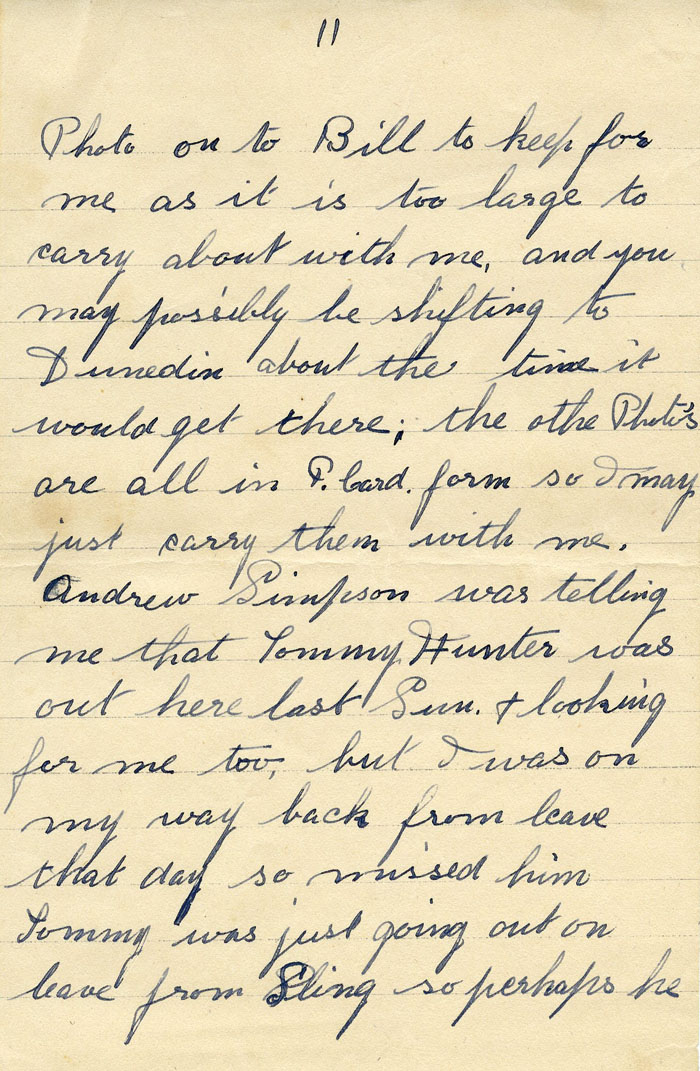 11
Photo on to Bill to keep for
me as it is too large to
carry about with me, and you
may possibly be shifting to
Dunedin about the time it
would get there; the othe Photo's
are all in P. Card. form so I may
just carry them with me.
Andrew Simpson was telling
me that Tommy Hunter was
out here last Sun. & looking
for me too, but I was on
my way back from leave
that day so missed him
Tommy was just going out on
leave from Sling so perhaps he